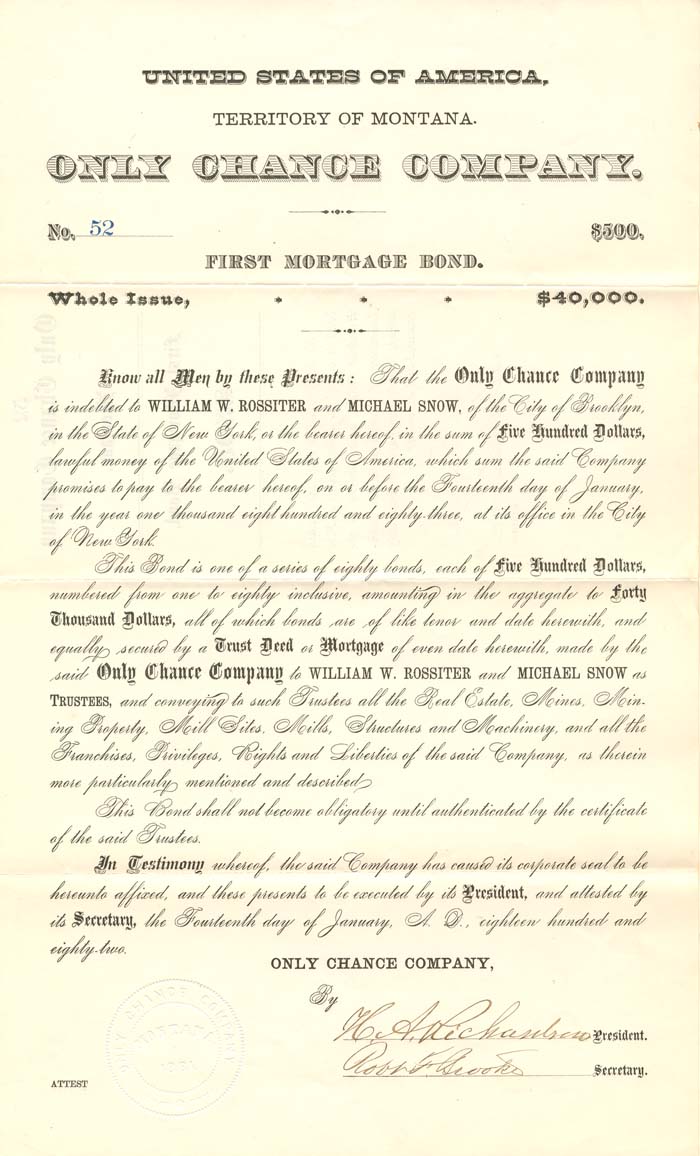 UNITED STATES OF AMERICA,
TERRITORY OF MONTANA.
ONLY CHANCE COMPANY.
No. 52 $500.
FIRST MORTGAGE BOND.
Whole Issue, * * * $40,000.
Know all Men by these Presents: That the Only Chance Company
is indebted to WILLIAM W. ROSSITER and MICHAEL SNOW, of the City of Brooklyn,
in the State of New York, or the bearer hereof, in the sum of Five Hundred Dollars,
lawful money of the United States of America, which sum the said Company
promises to pay to the bearer hereof, on or before the Fourteenth day of January,
in the year one thousand eight hundred and eighty-three, at its office in the City
of New York.
This Bond is one of a series of eighty bonds, each of Five Hundred Dollars,
numbered from one to eighty inclusive, amounting in the aggregate to Forty
Thousand Dollars, all of which bonds are of like tenor and date herewith, and
equally secured by a Trust Deed or Mortgage of even date herewith, made by the
said Only Chance Company to WILLIAM W. ROSSITER and MICHAEL SNOW as
TRUSTEES, and conveying to such Trustees all the Real Estate, Mines, Min-
ing Property, Mill Sites, Mills, Structures and Machinery, and all the
Franchises, Privileges, Rights and Liberties of the said Company, as therein
more particularly mentioned and described
This Bond shall not become obligatory until authenticated by the certificate
of the said Trustees.
In Testimony whereof, the said Company has caused its corporate seal to be
hereunto affixed, and these presents to be executed by its President, and attested by
its Secretary, the Fourteenth day of January, A. D., eighteen hundred and
eighty-two.
ONLY CHANCE COMPANY,
By
H. A. Richardson President.
Robt F. Brooke Secretary.
ONLY CHANCE COMPANY
ATTEST